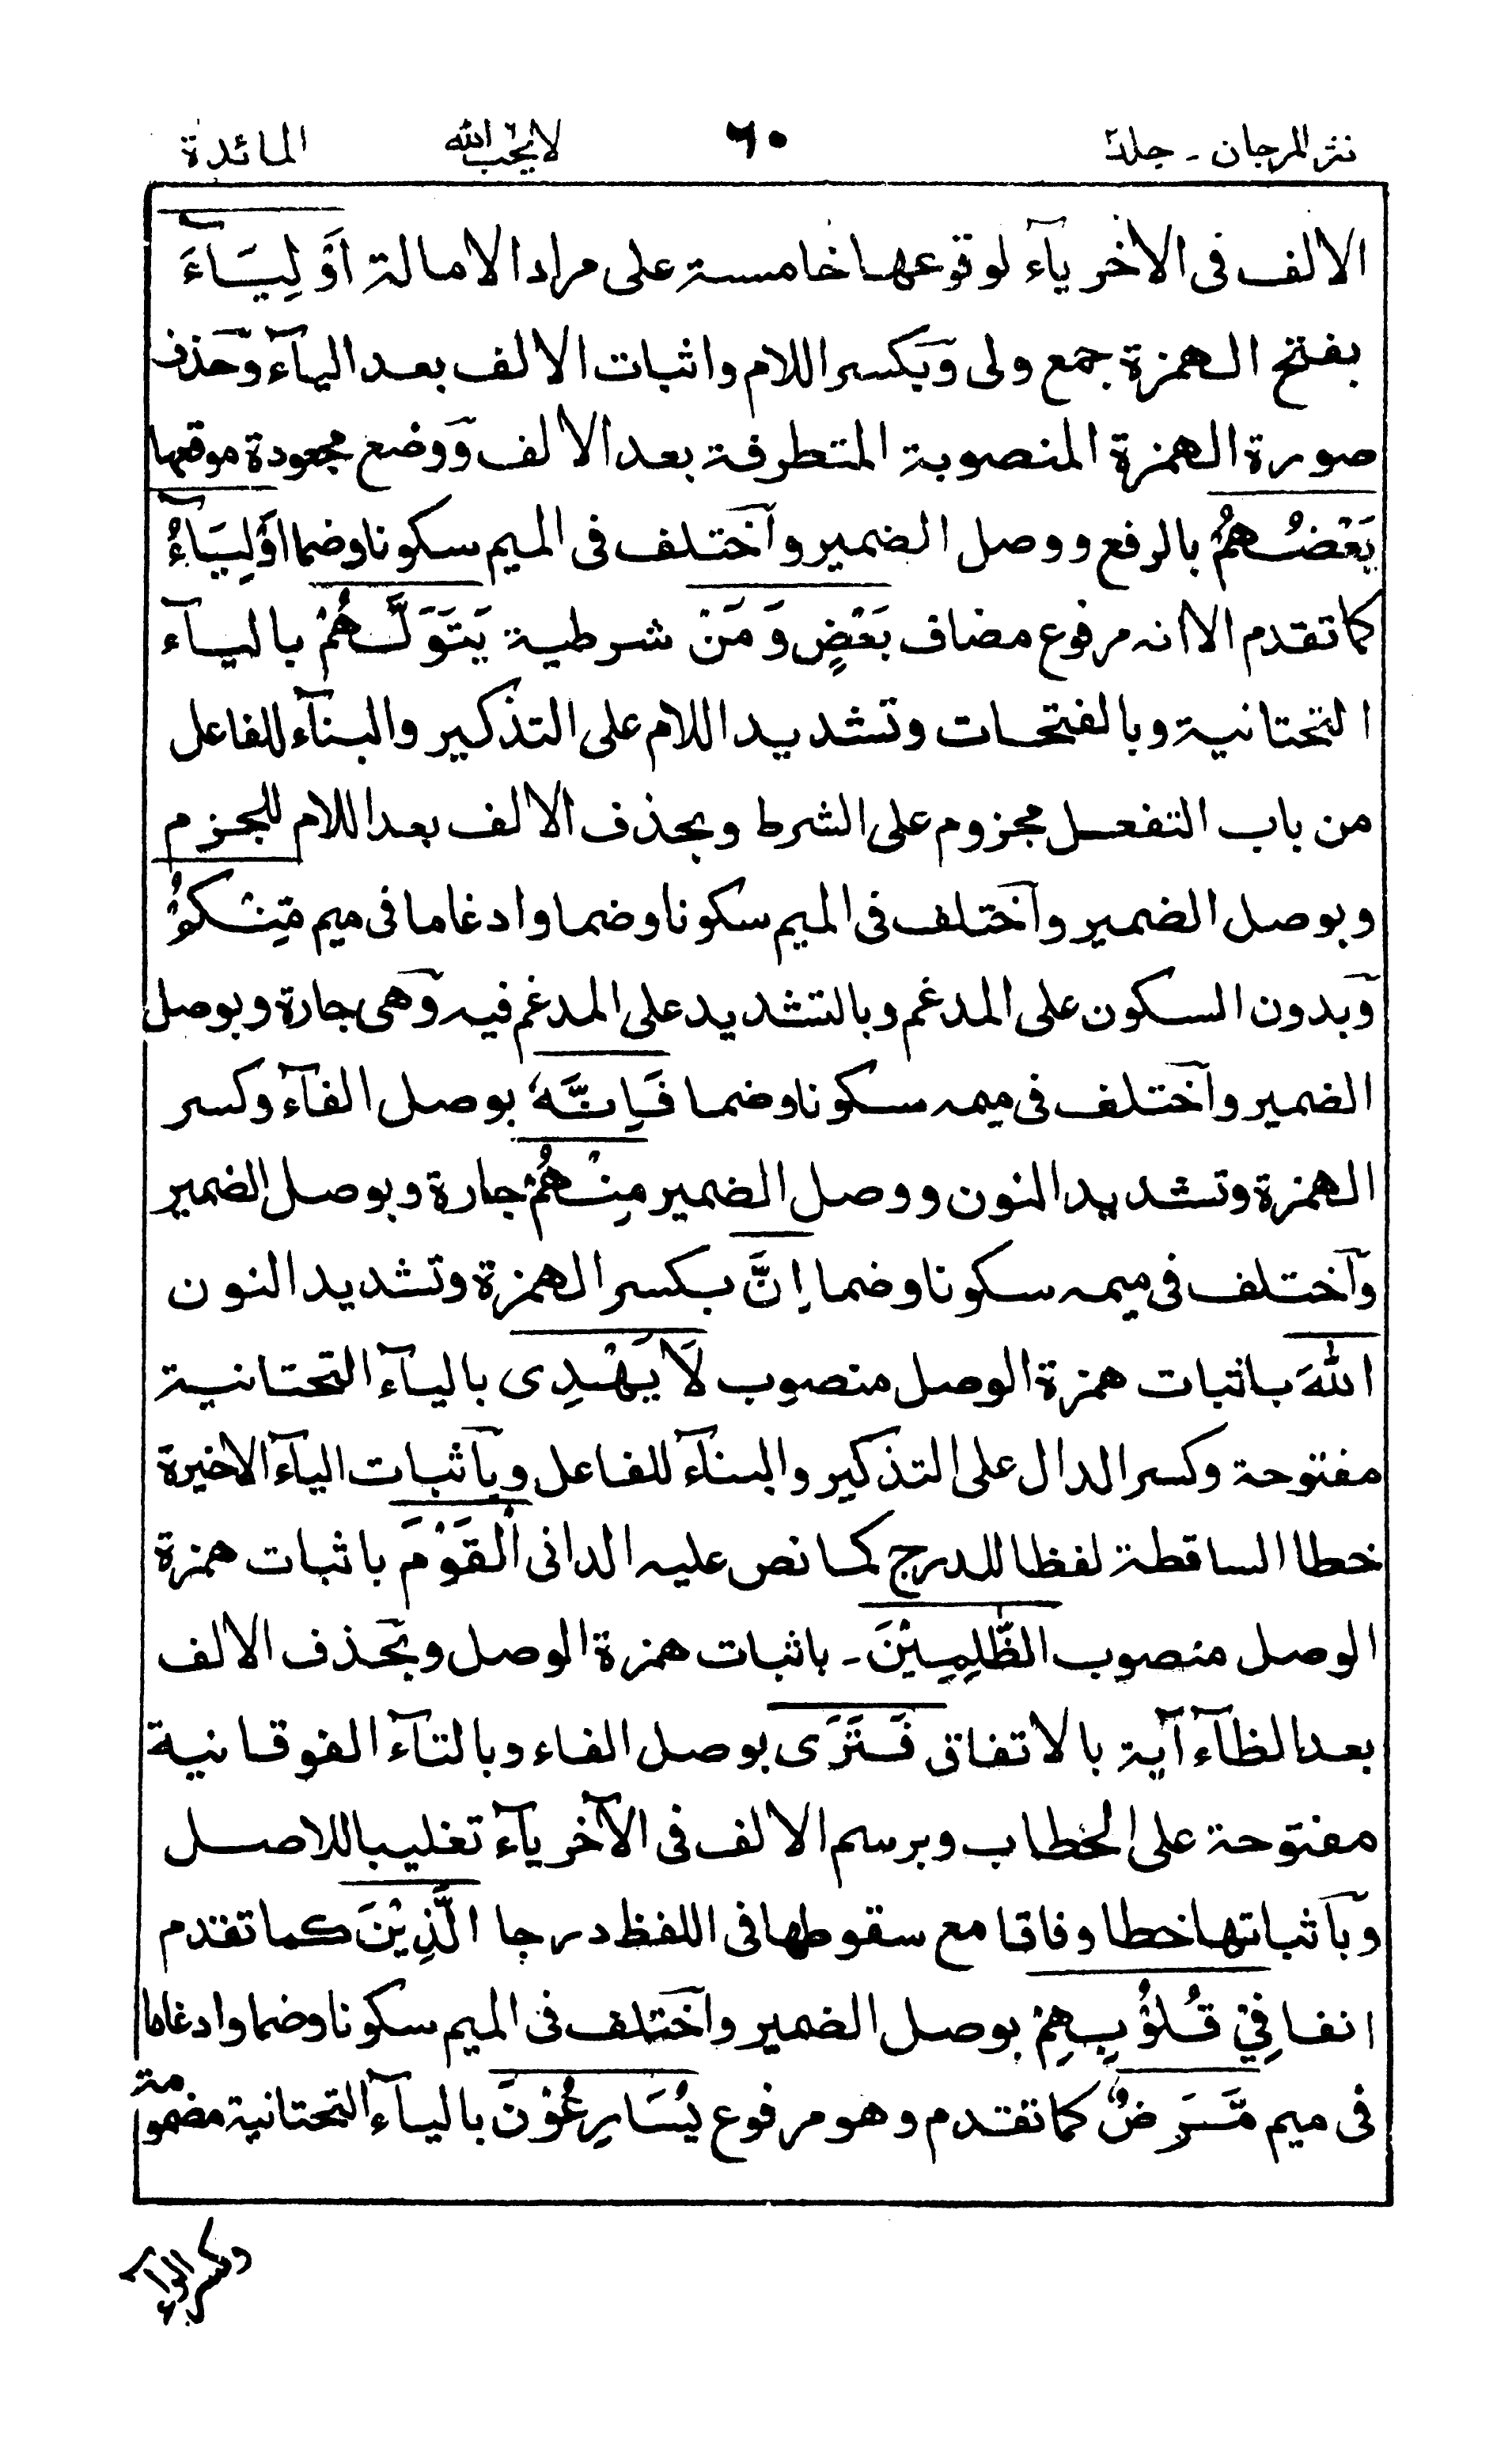 نثر المرجان ـ جلد٢ ٦٠ لا يحب الله المائدة
الالف فى الاخر يآء لوقوعها خامسة على مراد الامالة اَوْلِيَآءَ
بفتح الهمزة جمع ولى وبكسر اللام واثبات الالف بعد اليآء وحذف
صورة الهمزة المنصوبة المتطرفة بعد الالف ووضع مجعودة موقعها
بَعْضُهُمْ بالرفع ووصل الضمير واختلف فى الميم سكونا وضما اَوْلِيَآءُ
كما تقدم الا انه مرفوع مضاف بَعْضٍ وَمَنْ شرطية يَتَوَلَّهُمْ باليآء
التحتانية وبالفتحات وتشديد اللام على التذكير والبنآء للفاعل
من باب التفعل مجزوم على الشرط وبحذف الالف بعد اللام للجزم
وبوصل الضمير واختلف فى الميم سكونا وضما وادغاما فى ميم مِّنْكُمْ
وبدون السكون على المدغم وبالتشديد على المدغم فيه وهى جارة وبوصل
الضمير واختلف فى ميمه سكونا وضما فَاِنَّهٗ بوصل الفآء وكسر
الهمزة وتشديد النون ووصل الضمير مِنْهُمْ جارة وبوصل الضمير
واختلف فى ميمه سكونا وضما اِنَّ بكسر الهمزة وتشديد النون
اللّٰهَ باثبات همزة الوصل منصوب لَا يَهْدِى باليآء التحتانية
مفتوحة وكسر الدال على التذكير والبنآء للفاعل وباثبات اليآء الاخيرة
خطا الساقطة لفظا للدرج كما نص عليه الدانى الْقَوْمَ باثبات همزة
الوصل منصوب الظّٰلِمِيْنَ ـ باثبات همزة الوصل وبحذف الالف
بعد الظآء آية بالاتفاق فَتَرَى بوصل الفاء وبالتآء الفوقانية
مفتوحة على الخطاب وبرسم الالف فى الآخر يآء تغليبا للاصل
وباثباتها خطا وفاقا مع سقوطها فى اللفظ درجا الَّذِيْنَ كما تقدم
انفا فِيْ قُلُوْبِهِمْ بوصل الضمير واختلف فى الميم سكونا وضما وادغاما
فى ميم مَّرَضٌ كما تقدم وهو مرفوع يُسَارِعُوْنَ باليآء التحتانية مضمومة
وكسر الراء